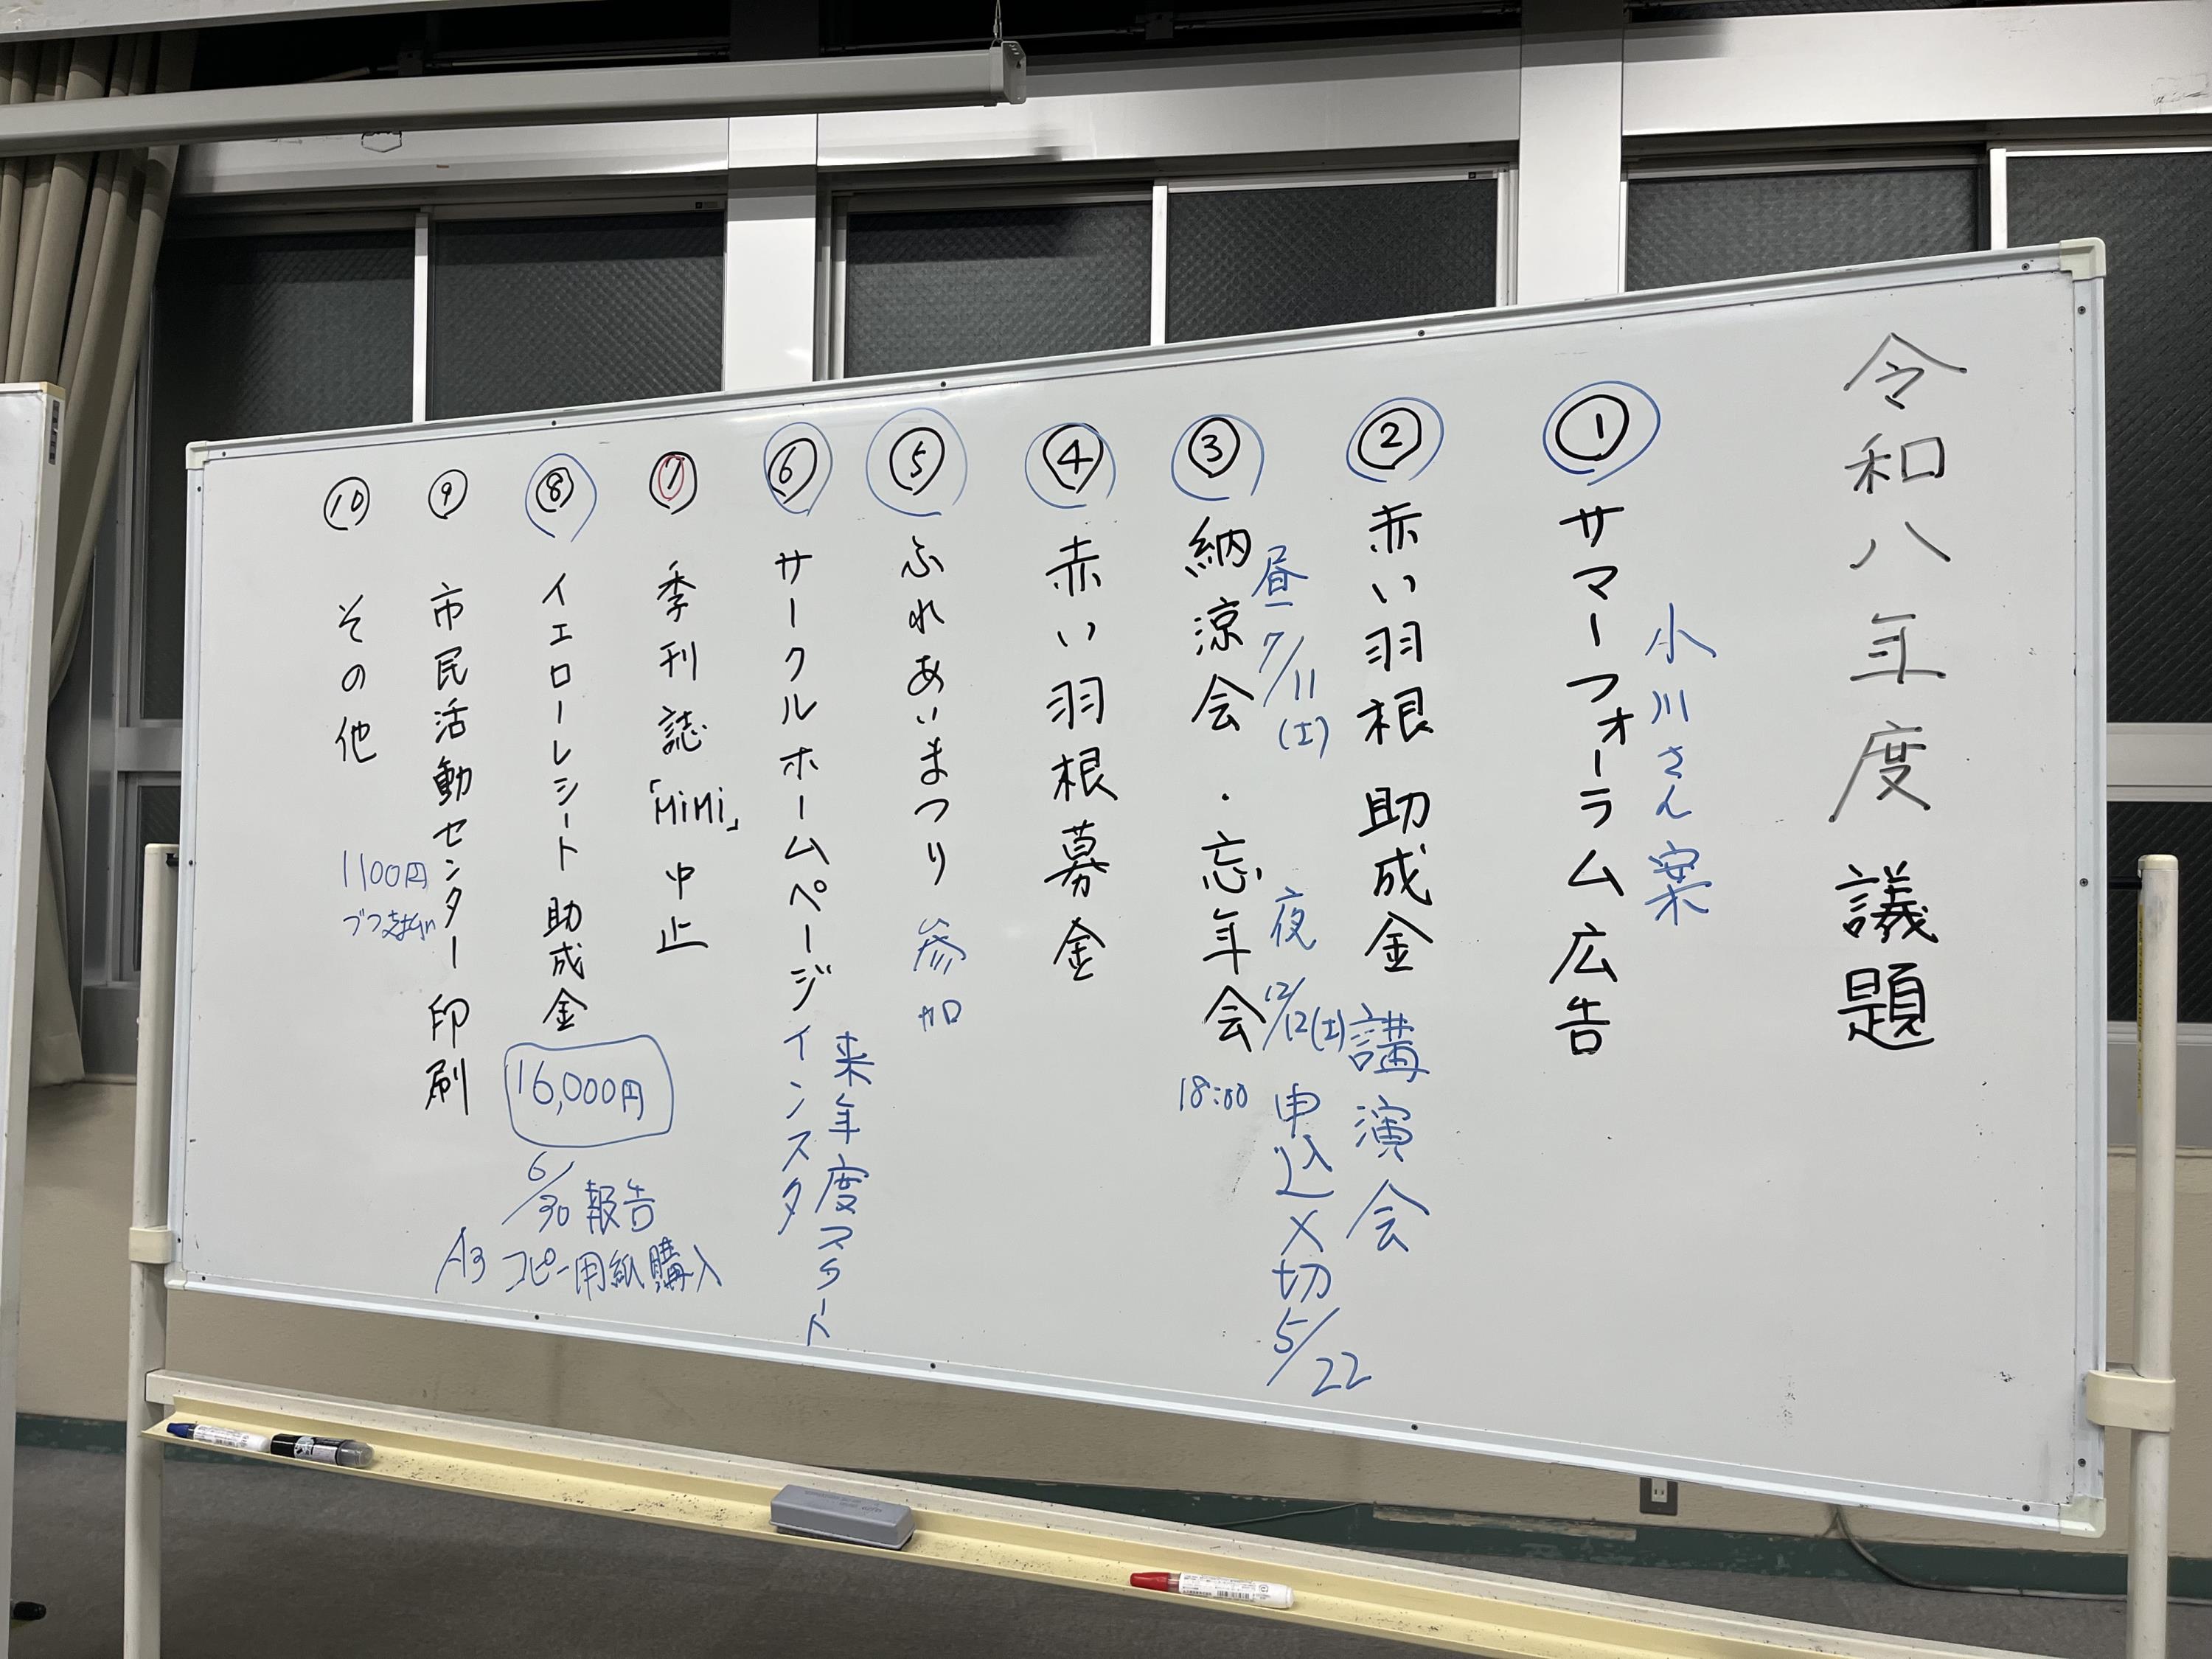 令和八年度 議題
小川さん案
① サマーフォーラム広告
② 赤い羽根 助成金 講演会
申込〆切5/22
昼 7/11(土)
夜 12/12(土)
③ 納涼会・忘年会 18:00
④ 赤い羽根募金
⑤ ふれあいまつり 参加
来年度スタート
⑥ サークルホームページ インスタ
⑦ 季刊誌「MiMi」中止
⑧ イエローレシート 助成金
16,000円
6/30 報告
A3 コピー用紙購入
⑨ 市民活動センター 印刷
1100円
⑩ その他